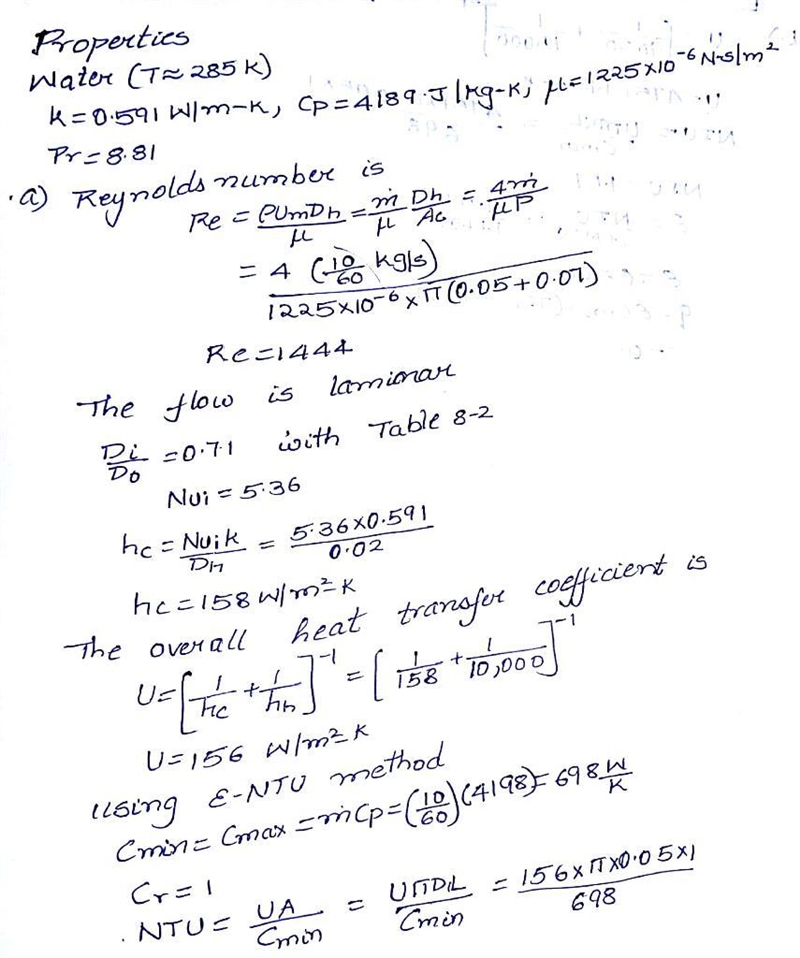 Properties
Water (T≈285K)
k=0.591 W/m-K, Cp=4189.J/kg-K, μ=1225×10⁻⁶ N-s/m²
Pr=8.81
a) Reynolds number is
Re = ρUmDh/μ = ṁ/μ Dh/Ac = 4ṁ/μP
= 4 (10/60 kg/s) / 1225×10⁻⁶×π(0.05+0.07)
Re=1444
The flow is lamionar
Di/Do =0.71 with Table 8-2
Nui = 5.36
hc = Nuik/Dh = 5.36×0.591/0.02
hc=158 W/m²K
The overall heat transfer coefficient is
U=[1/hc + 1/hh]⁻¹ = [1/158 + 1/10,000]⁻¹
U=156 W/m²K
using ε-NTU method
Cmin= Cmax =ṁCp=(10/60)(4198)= 698 W/K
Cr=1
NTU= UA/Cmin = UπDiL/Cmin = 156×π×0.05×1/698